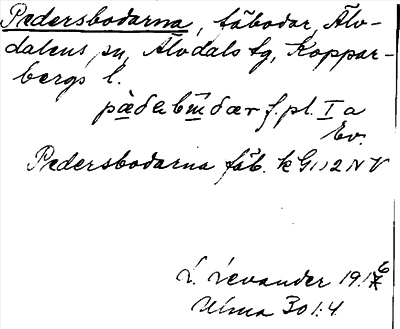 Pedersbodarna, fäbodar, Älv-
dalens sn, Älvdals tg, Koppar-
bergs l.
f. pl. I a
Ev.
Pedersbodarna fäb. k G112 NV
L. Levander 1916
Ulma 301:4